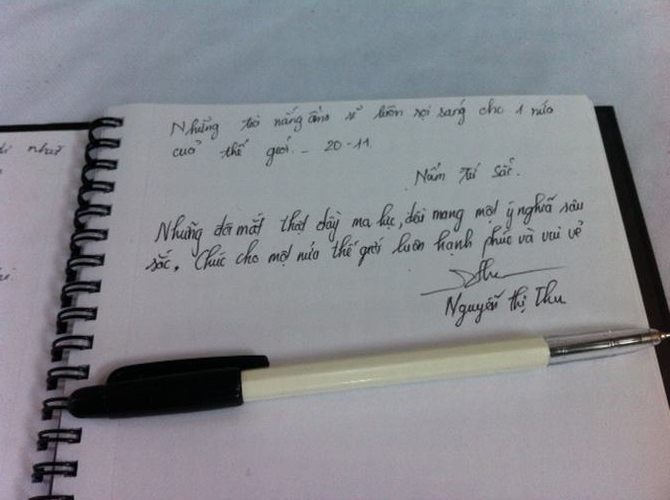 như
Những tia nắng ấm sẽ luôn soi sáng cho 1 nửa
của thế giới. - 20-11.
Nấm Tứ Sắc.
Những đôi mắt thật đầy ma lực, đều mang một ý nghĩa sâu
sắc. Chúc cho một nửa thế giới luôn hạnh phúc và vui vẻ
Nguyễn Thị Thu